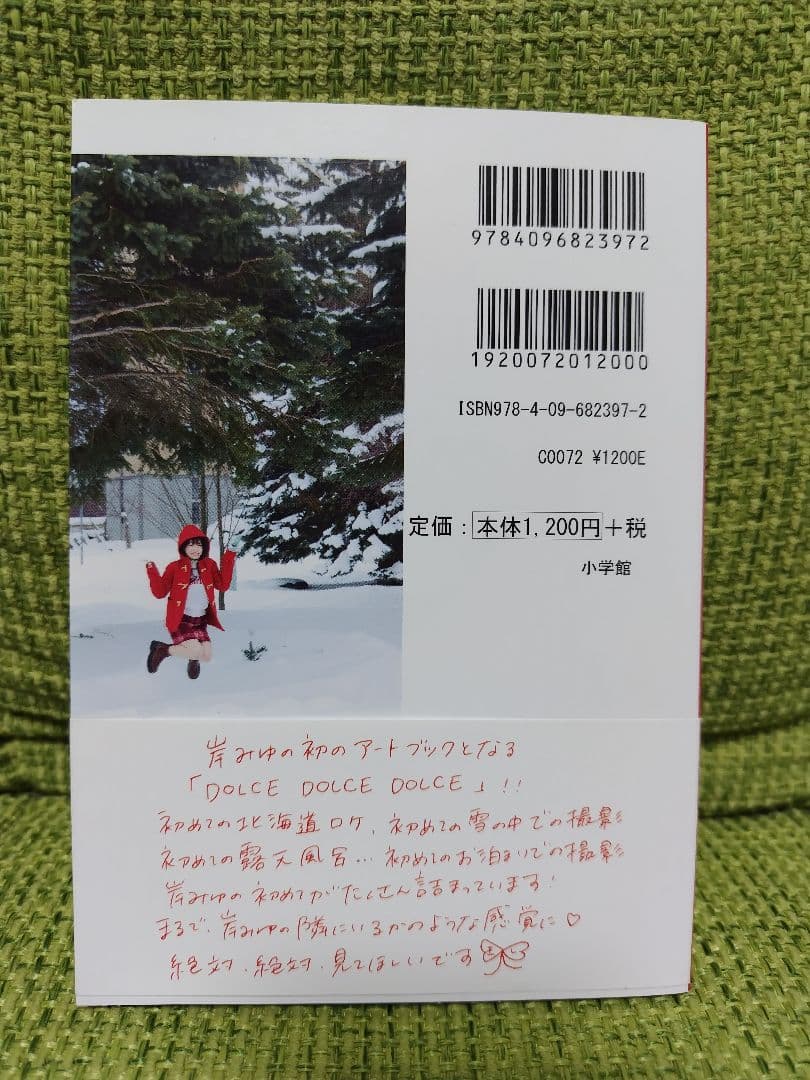 9784096823972
1920072012000
ISBN978-4-09-682397-2
C0072 ¥1200E
定価：本体1,200円＋税
小学館
岸みゆの初のアートブックとなる
「DOLCE DOLCE DOLCE」!!
初めての北海道ロケ、初めての雪の中での撮影
初めての露天風呂…初めてのお泊まりでの撮影
岸みゆの初めてがたくさん詰まっています!
まるで、岸みゆの隣にいるかのような感覚に♡
絶対、絶対、見てほしいです